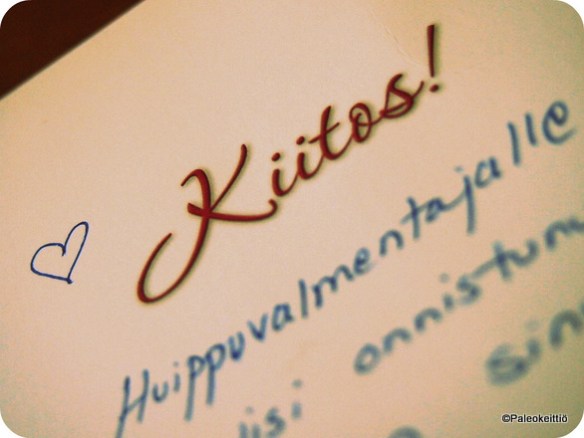 Kiitos!
Huippuvalmentajalle
onnistum
sin
©Paleokeittiö